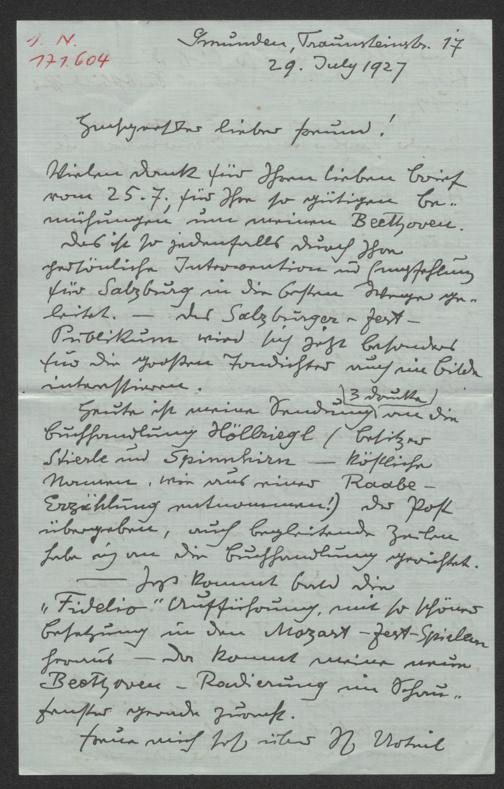 J. N.
171.604
Gmunden, Traunsteinstr. 17
29. July 1927
Hochgeehrter lieber Freund!
Vielen Dank für Ihren lieben Brief
vom 25.7., für Ihre so gütigen Be-
mühungen um meinen Beethoven.
Das ist so jedenfalls durch Ihre
persönliche Intervention und Empfehlung
für Salzburg in die besten Wege ge-
leitet. — Das Salzburger-Fest-
Publikum wird sich jetzt besonders
für die großen Tondichter auch im Bilde
interessieren.
Heute ist meine Sendung (3 Drucke) an die
Buchhandlung Höllriegl (Besitzer
Stierle und Spinnhirn — köstliche
Namen, wie aus einer Raabe-
Erzählung entnommen!) der Post
übergeben, auch begleitende Zeilen
habe ich an die Buchhandlung gerichtet.
— Jetzt kommt bald die
„Fidelio" Aufführung, mit so schöner
Besetzung in den Mozart-Fest-Spielen
heraus — da kommt meine neue
Beethoven-Radierung im Schau-
fenster gerade zurecht.
Freue mich sehr über Ihr Urteil